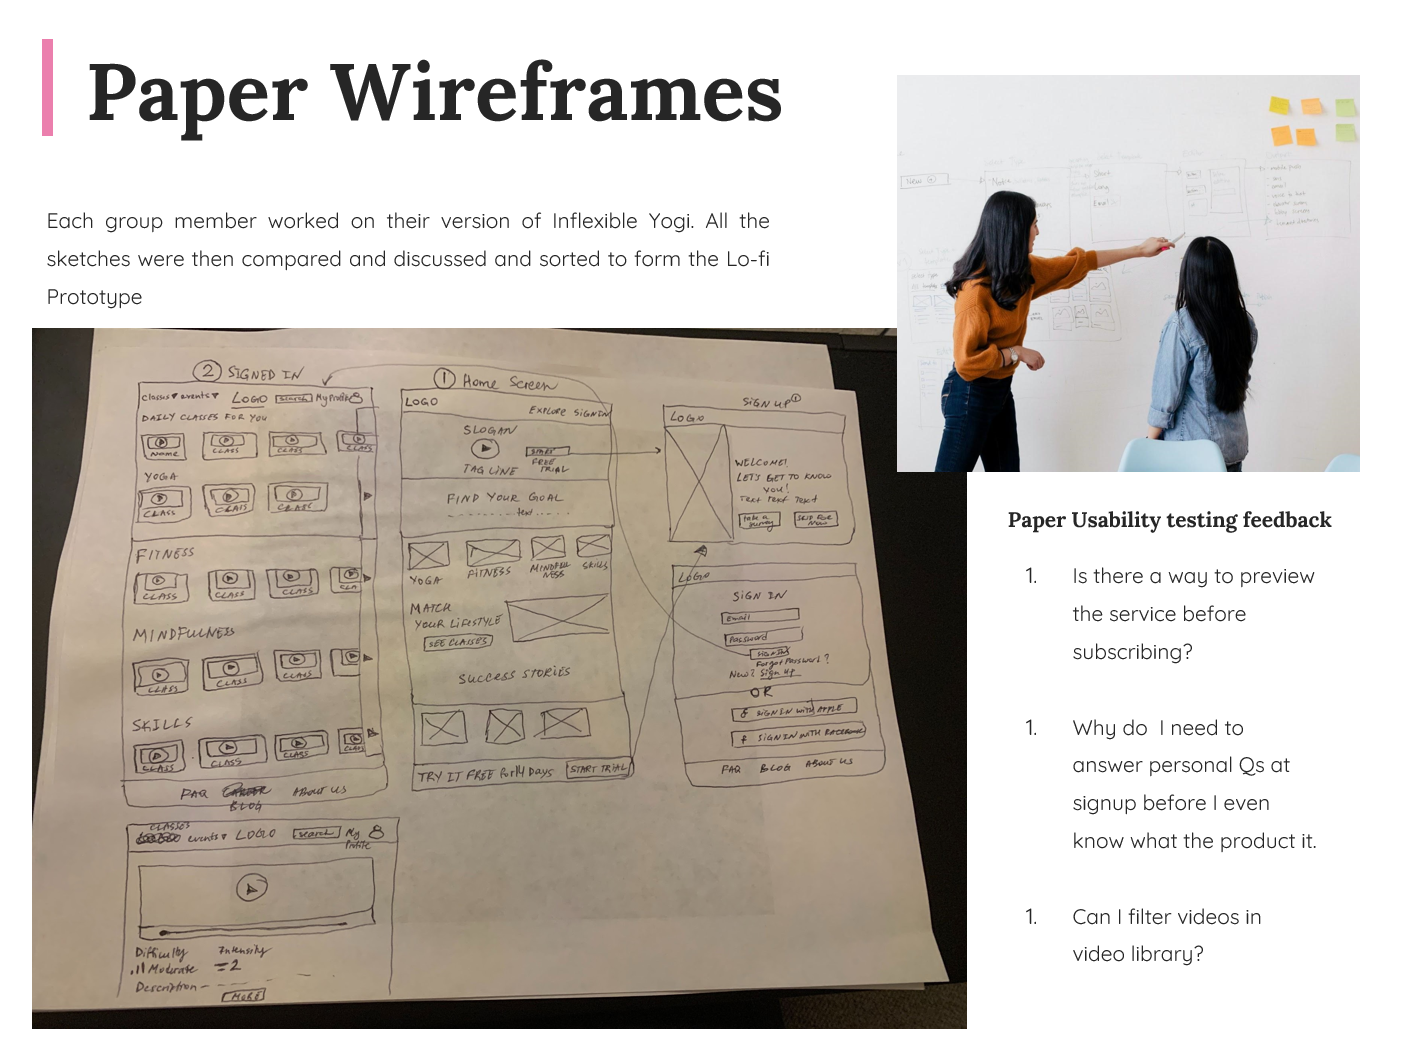 Paper Wireframes
Each group member worked on their version of Inflexible Yogi. All the
sketches were then compared and discussed and sorted to form the Lo-fi
Prototype
② SIGNED IN
classes ▾ events ▾ LOGO search My Profile
DAILY CLASSES FOR YOU
NAME CLASS CLASS CLASS
YOGA
CLASS CLASS CLASS
FITNESS
CLASS CLASS CLASS CLA
MINDFULNESS
CLASS CLASS CLASS
SKILLS
CLASS CLASS CLASS CLASS
FAQ BLOG ABOUT US
① Home Screen
LOGO
EXPLORE SIGN IN
SLOGAN
START
FREE
TRIAL
TAG LINE
FIND YOUR GOAL
text
YOGA FITNESS MINDFUL NESS SKILLS
MATCH
YOUR LIFESTYLE
SEE CLASSES
SUCCESS STORIES
TRY IT FREE for 14 Days START TRIAL
SIGN UP ①
LOGO
WELCOME!
LET'S GET TO KNOW
YOU!
Text Text Text
take a survey
SKIP FOR NOW
LOGO
SIGN IN
Email
Password
SIGN IN
Forgot Password?
New? Sign Up
OR
SIGN IN WITH APPLE
f SIGN IN WITH FACEBOOK
FAQ BLOG ABOUT US
CLASSES
events ▾ LOGO search My
Profile
Difficulty Intensity
Moderate = 2
Description -
MORE
New
Paper Usability testing feedback
1. Is there a way to preview
the service before
subscribing?
1. Why do I need to
answer personal Qs at
signup before I even
know what the product it.
1. Can I filter videos in
video library?